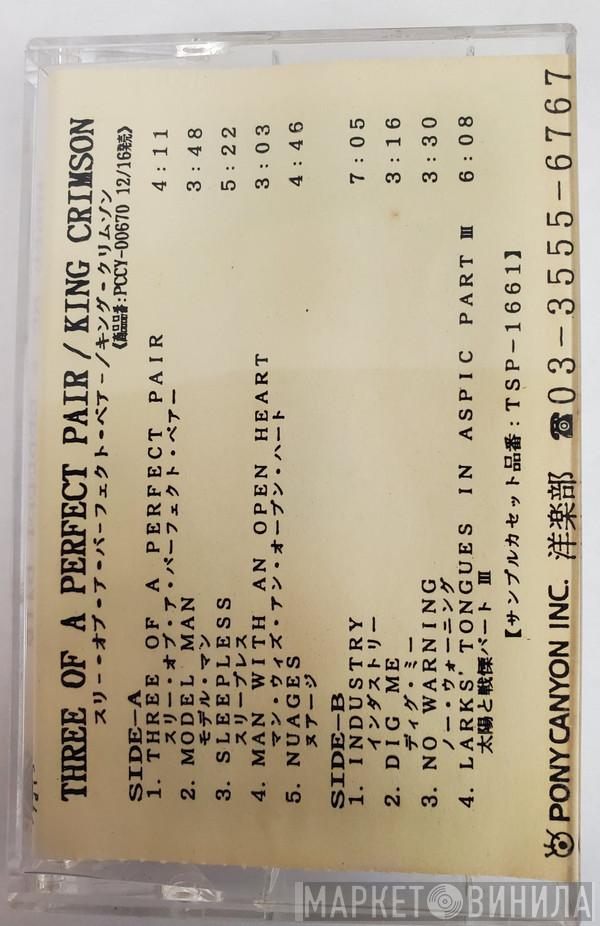 THREE OF A PERFECT PAIR / KING CRIMSON
スリー・オブ・ア・パーフェクト・ペアー/キング・クリムゾン
《商品品番:PCCY-00670 12/16発売》
SIDE-A
1. THREE OF A PERFECT PAIR 4:11
スリー・オブ・ア・パーフェクト・ペアー
2. MODEL MAN 3:48
モデル・マン
3. SLEEPLESS 5:22
スリープレス
4. MAN WITH AN OPEN HEART 3:03
マン・ウィズ・アン・オープン・ハート
5. NUAGES 4:46
ヌアージ
SIDE-B
1. INDUSTRY 7:05
インダストリー
2. DIG ME 3:16
ディグ・ミー
3. NO WARNING 3:30
ノー・ウォーニング
4. LARKS' TONGUES IN ASPIC PART Ⅲ 6:08
太陽と戦慄パート Ⅲ
【サンプルカセット品番:TSP-1661】
PONY CANYON INC. 洋楽部 ☎03-3555-6767
МАРКЕТ ВИНИЛА